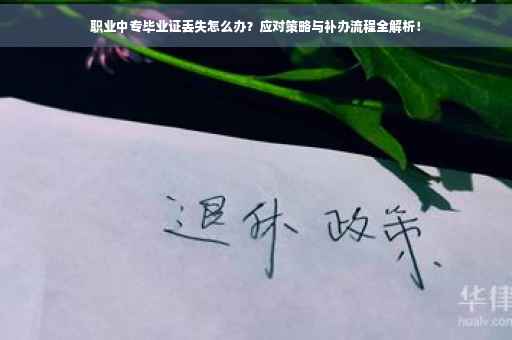 职业中专毕业证丢失怎么办？应对策略与补办流程全解析！
退休 政策
华律
hualv.com